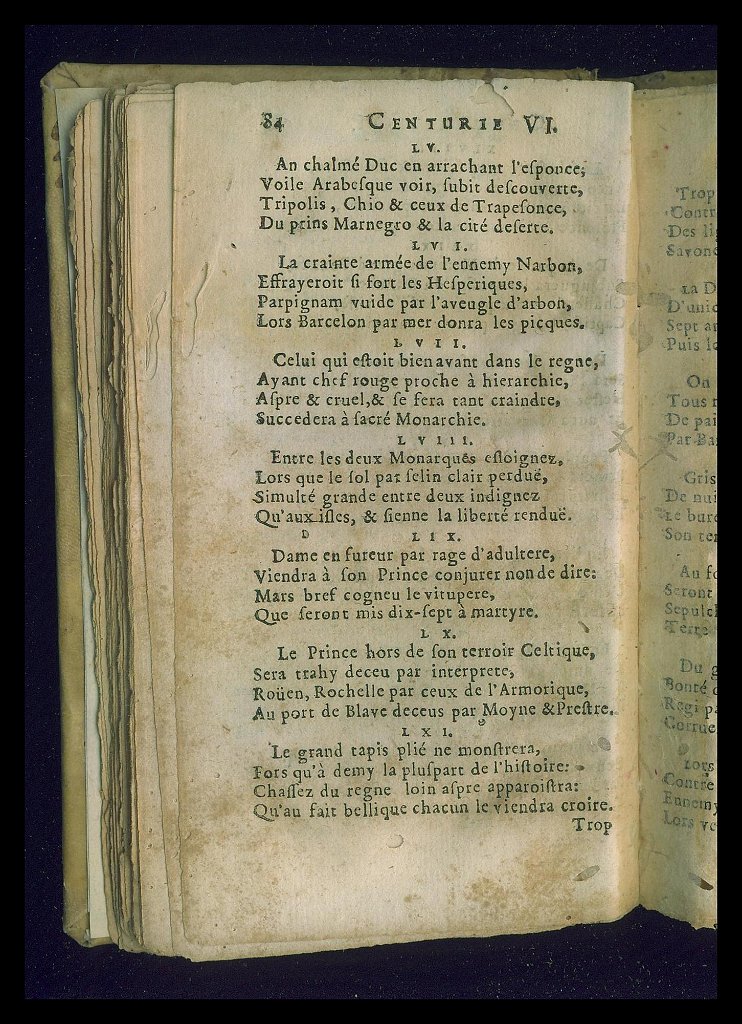 84 CENTURIE VI.
LV.
An chalmé Duc en arrachant l'esponce,
Voile Arabesque voir, subit descouverte,
Tripolis, Chio & ceux de Trapesonce,
Du prins Marnegro & la cité deserte.
LVI.
La crainte armée de l'ennemy Narbon,
Effrayeroit si fort les Hesperiques,
Parpignam vuide par l'aveugle d'arbon,
Lors Barcelon par mer donra les picques.
LVII.
Celui qui estoit bien avant dans le regne,
Ayant chef rouge proche à hierarchie,
Aspre & cruel, & se fera tant craindre,
Succedera à sacré Monarchie.
LVIII.
Entre les deux Monarques esloignez,
Lors que le sol par selin clair perduë,
Simulté grande entre deux indignez
Qu'aux isles, & sienne la liberté renduë.
LIX.
Dame en fureur par rage d'adultere,
Viendra à son Prince conjurer non de dire:
Mars bref cogneu le vitupere,
Que seront mis dix-sept à martyre.
LX.
Le Prince hors de son terroir Celtique,
Sera trahy deceu par interprete,
Roüen, Rochelle par ceux de l'Armorique,
Au port de Blave deceus par Moyne & Prestre.
LXI.
Le grand tapis plié ne monstrera,
Fors qu'à demy la pluspart de l'histoire:
Chassez du regne loin aspre apparoistra:
Qu'au fait bellique chacun le viendra croire.
Trop
Trop
Contr
Des li
Savone
La D
D'unic
Sept an
Puis le
On
Tous
De pai
Par Ba
Gris
De nui
Le bur
Son te
Au fo
Seront
Sepulc
Terre
Du g
Bonté
Regi p
Corrue
Lors
Contre
Ennemy
Lors ve